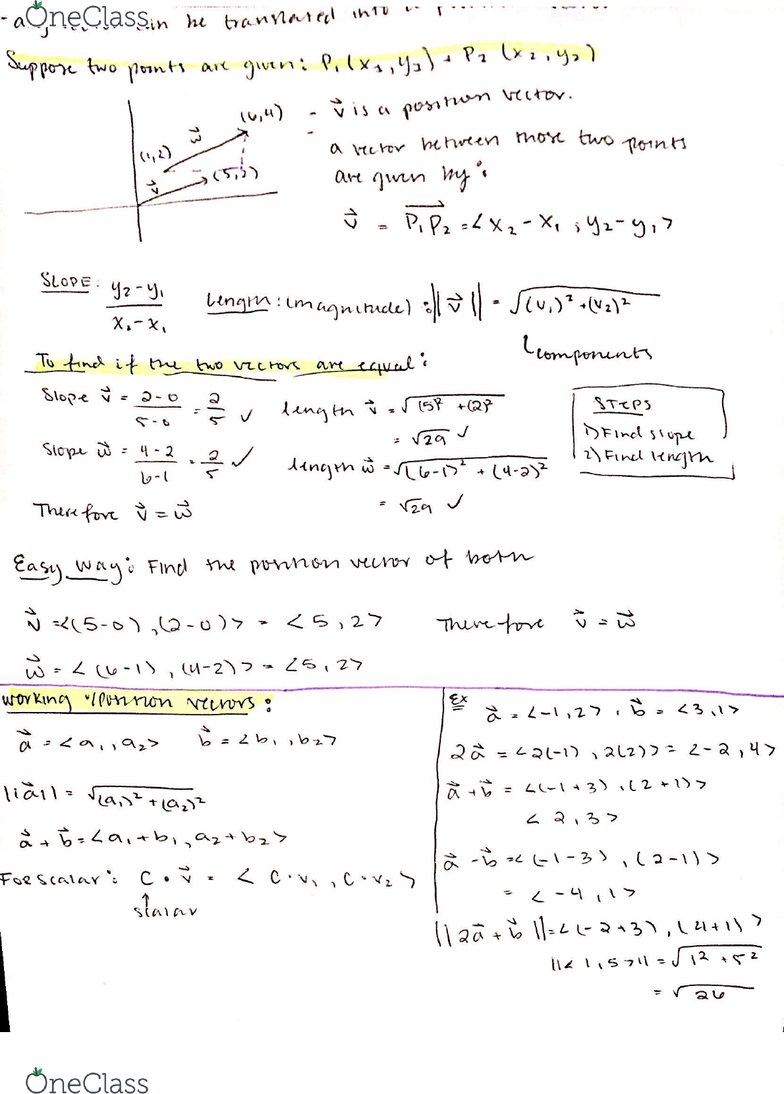 OneClass
- a in be translated into
Suppose two points are given: P₁(x₁,y₁) + P₂(x₂,y₂)
(6,4)
w⃗
(1,2)
(5,2)
v⃗
- v⃗ is a position vector.
- a vector between those two points
are given by:
v⃗ = P₁P₂ = <x₂-x₁, y₂-y₁>
SLOPE: y₂-y₁ / x₂-x₁
Length: (magnitude): ||v⃗|| = √(v₁)²+(v₂)²
components
To find if the two vectors are equal:
Slope v⃗ = 2-0 / 5-0 = 2/5 ✓
length v⃗ = √(5)²+(2)²
= √29 ✓
Slope w⃗ = 4-2 / 6-1 = 2/5 ✓
length w⃗ = √(6-1)² + (4-2)²
= √29 ✓
STEPS
1) Find slope
2) Find length
Therefore v⃗ = w⃗
Easy way: Find the position vector of both
v⃗ = <(5-0), (2-0)> = <5,2>
Therefore v⃗ = w⃗
w⃗ = <(6-1), (4-2)> = <5,2>
working w/position vectors:
a⃗ = <a₁, a₂> b⃗ = <b₁, b₂>
||a⃗|| = √(a₁)²+(a₂)²
a⃗ + b⃗ = <a₁+b₁, a₂+b₂>
For scalar: C • v⃗ = <C•v₁, C•v₂>
↑
scalar
Ex a⃗ = <-1,2>, b⃗ = <3,1>
2a⃗ = <2(-1), 2(2)> = <-2,4>
a⃗+b⃗ = <(-1+3), (2+1)>
<2,3>
a⃗-b⃗ = <(-1-3), (2-1)>
= <-4,1>
||2a⃗+b⃗|| = <(-2+3), (4+1)>
||<1,5>|| = √1²+5²
= √26
OneClass